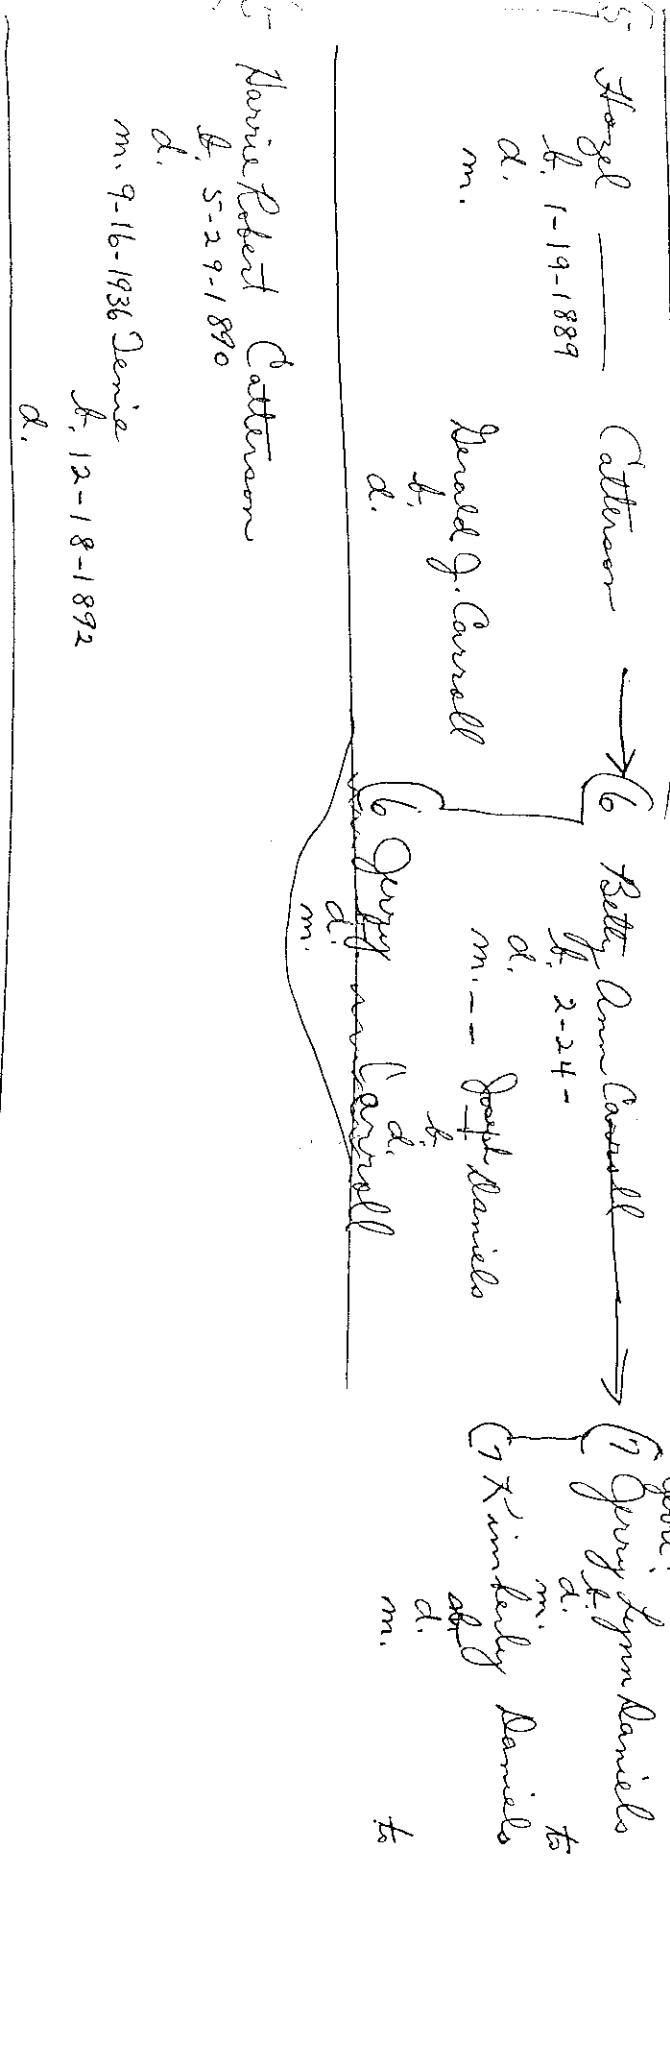 (5 Hazel —— Catterson → (6 Betty Ann Carroll → (7 Jerry Lynn Daniels
b. 1-19-1889
d.
m.
Gerald J. Carroll
b.
d.
b. 2-24-
d.
m. -- Joseph Daniels
b.
d.
b.
d.
m. to
(7 Kimberly Daniels
b.
d.
m. to
(6 Jerry Carroll
d.
m.
(5 Harrie Robert Catterson
b. 5-29-1890
d.
m. 9-16-1936 Temie
b. 12-18-1892
d.